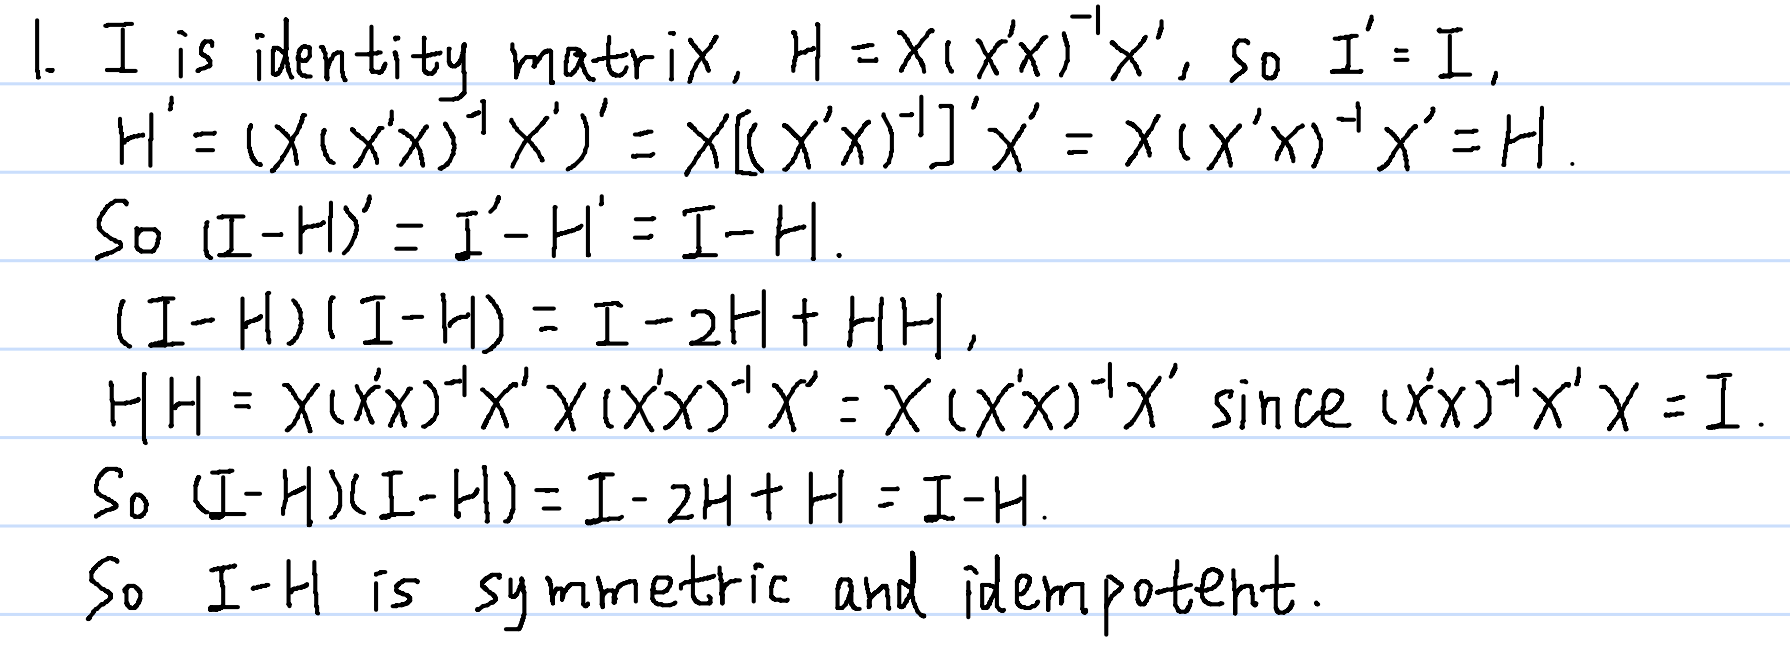 1. I is identity matrix, H = X(X'X)⁻¹X', so I' = I,
H' = (X(X'X)⁻¹X')' = X[(X'X)⁻¹]'X' = X(X'X)⁻¹X' = H.
So (I-H)' = I'-H' = I-H.
(I-H)(I-H) = I-2H+HH,
HH = X(X'X)⁻¹X'X(X'X)⁻¹X' = X(X'X)⁻¹X' since (X'X)⁻¹X'X = I.
So (I-H)(I-H) = I-2H+H = I-H.
So I-H is symmetric and idempotent.